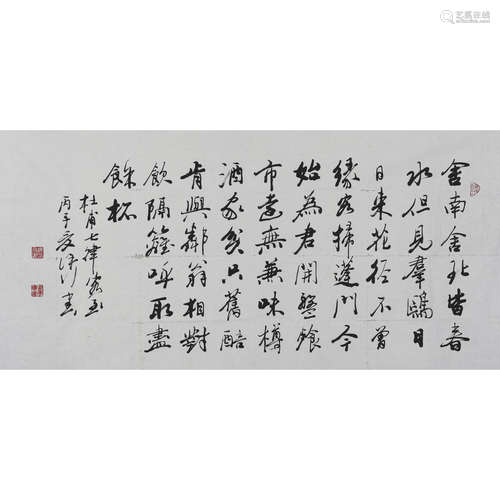 舍南舍北皆春
水但見羣鷗日
日來花徑不曾
緣客掃蓬門今
始為君開盤飧
市遠無兼味樽
酒家貧只舊醅
肯與鄰翁相對
飲隔籬呼取盡
餘杯
杜甫七律客至
丙子夏書
艺狐在线